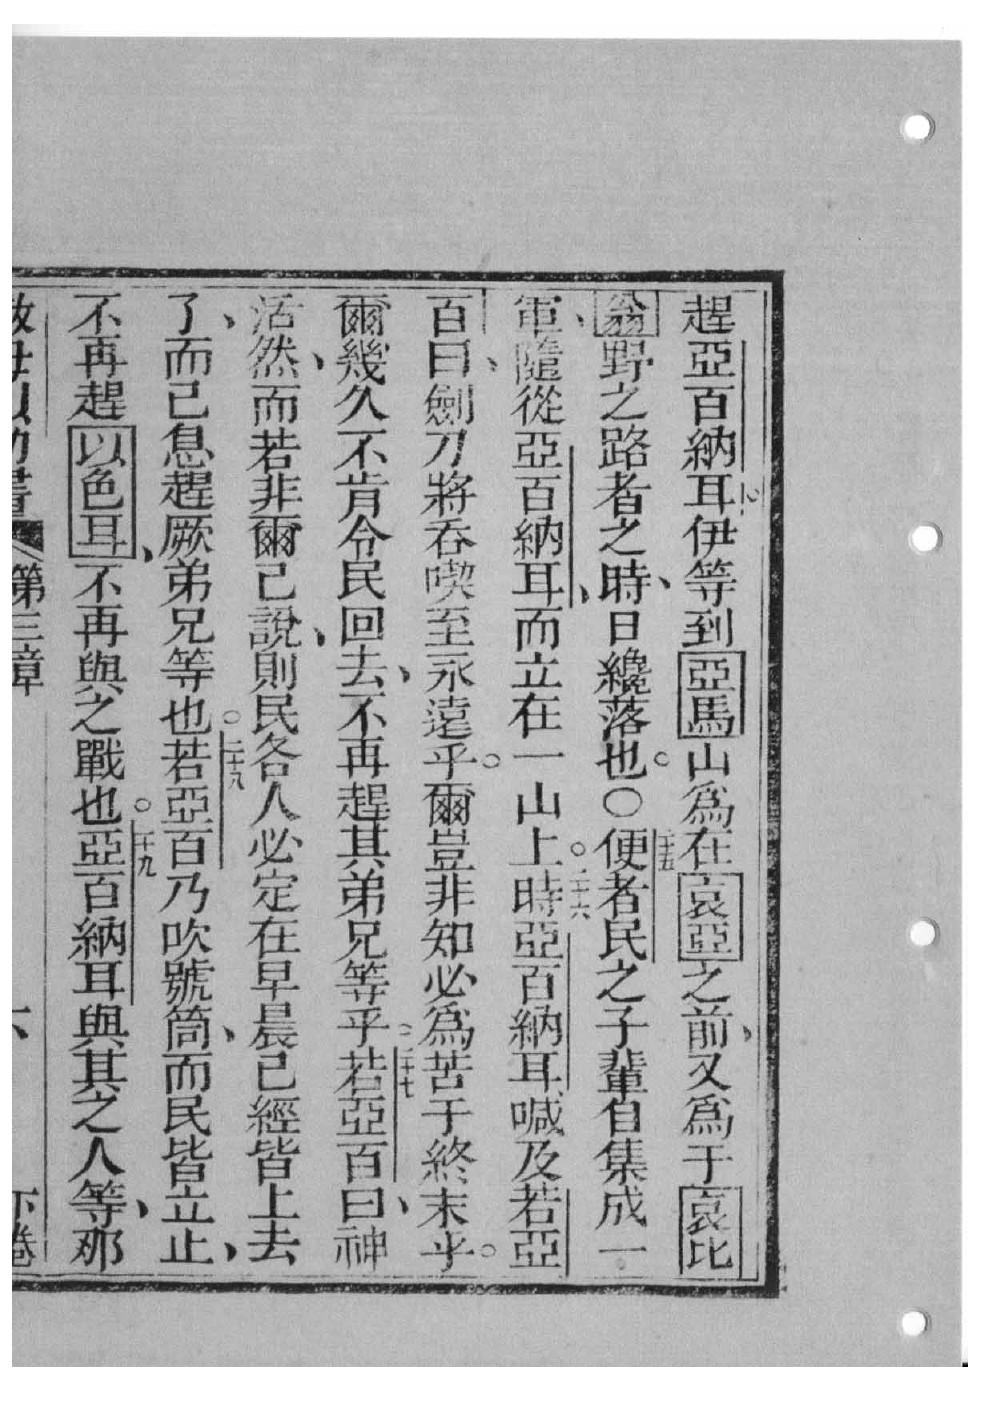 趕亞百納耳伊等到亞馬山爲在哀亞之前又爲于哀比
翁野之路者之時日纔落也○二十五便者民之子輩自集成一
軍隨從亞百納耳而立在一山上二十六時亞百納耳喊及若亞
百曰劍刀將吞喫至永遠乎爾豈非知必爲苦于終末乎
爾幾久不肯令民回去不再趕其弟兄等乎二十七若亞百曰神
活然而若非爾已說則民各人必定在早晨已經皆上去
了而已息趕厥弟兄等也二十八若亞百乃吹號筒而民皆立止
不再趕以色耳不再與之戰也二十九亞百納耳與其之人等那
第三章 下卷